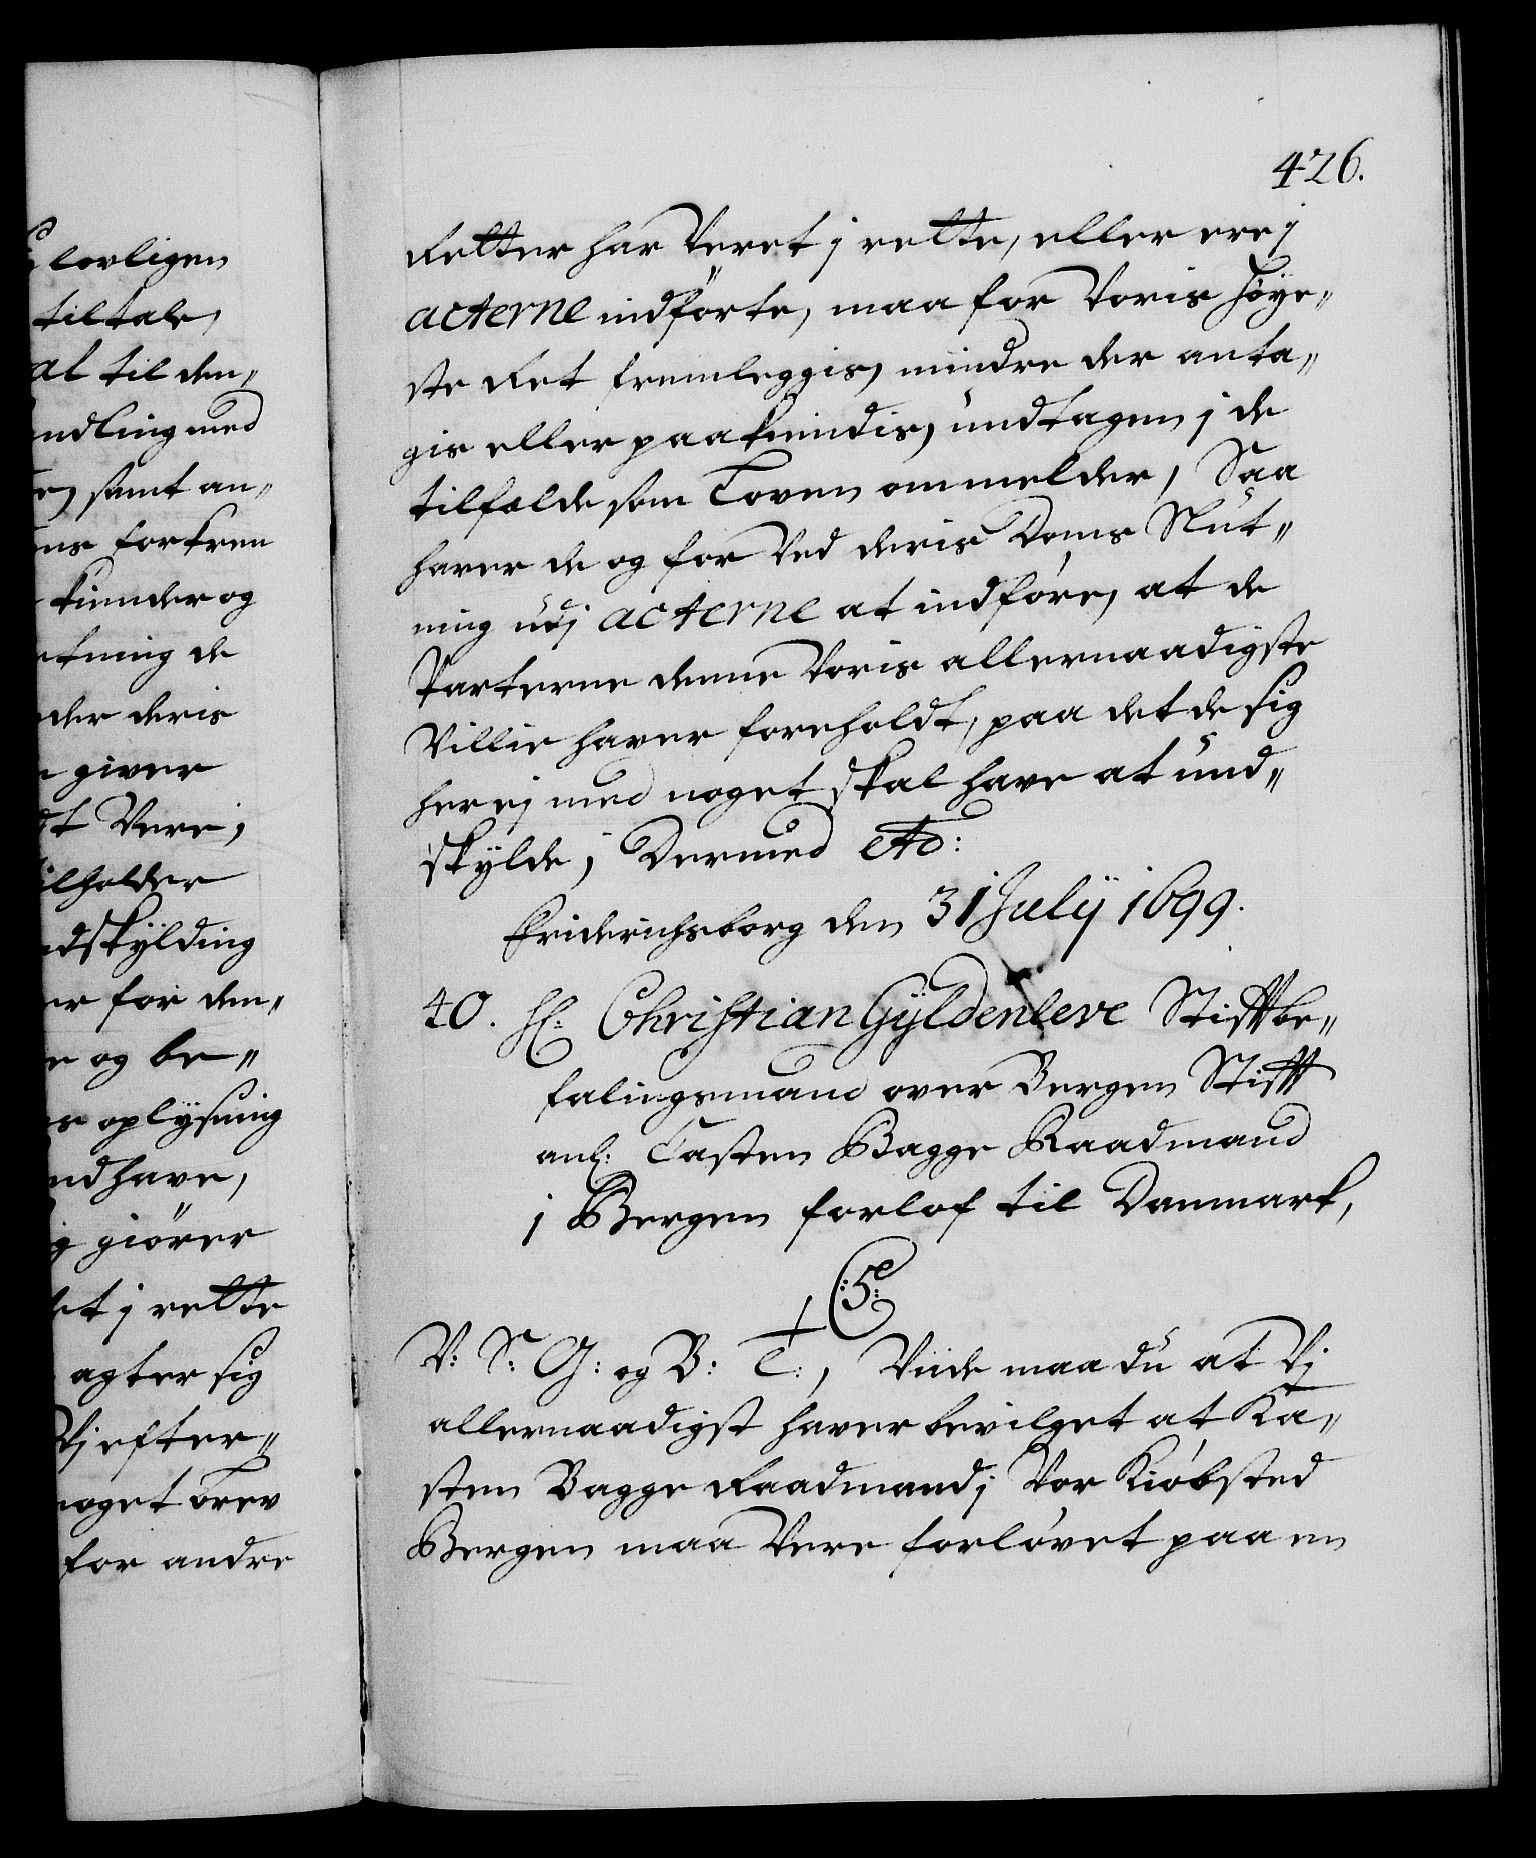 lovligen
tiltale,
al til den,,
ndling med
samt an,,
ns forkren
kiender og
etning de
der deris
giver
dt Vere,
ilholder
dskÿlding
er for den,,
e og be,,
s oplÿsning
ndhave,
g giörer
et j rette
agter sig
Vj efter,,
noget brev
for andre
426.
Retter har Veret j rette, eller ere j
acterne indförte, maa for Voris Höÿe,,
ste Ret fremleggis, mindre der anta,,
gis eller paakiendis, undtagen j de
tilfelde som Loven ommelder, Saa
haver de og for Ved deris Doms Slut,,
ning udj acterne at indföre, at de
Parterne denne Voris allernaadigste
Villie haver foreholdt, paa det de sig
herej med noget skal have at und,,
skÿlde, Dermed etc:
Friderichsborg den 31 Julij 1699.
40. H: Christian Gÿldenleve Stiftbe,,
falingsmand over Bergen Stift
anl: Casten Bagge Raadmand
j Bergen forlof til Danmark,
C:5:
V: S: G: og B: T:, Viide maa du at Vj
allernaadigst haver bevilget at Ka,,
sten Bagge Raadmand j Vor Kiöbsted
Bergen maa Vere forlövet paa en